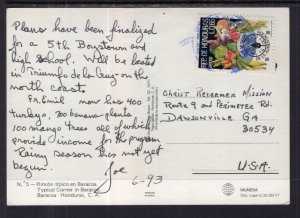 Plans have been finalized
for a 5th Boystown and
high School. Will be located
in Triunfo de la Cruz on the
north coast.
Fr. Emil now has 400
turkeys, 700 banana plants,
100 mango trees all of which
provide income for the program
Rainy Season has not yet
begun. Joe
6-93
REP. DE HONDURAS
Christ Redeemer Mission
Route 9 and Perimeter Rd.
Dawsonville GA
30534
U.S.A.
N.° 5 - Rincón típico en Baracoa.
Typical Corner in Baracoa
Baracoa - Honduras, C. A.
MUNESA